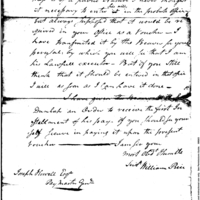 it necessary to enter it in the publick office
but always supposed that it would be re-
quired in your office as a Voucher I have
transmitted it by the Bearer for your
perusal, by which you will see that I am
his Lawfull executor. But if you still
think that it should be entered in that office
I will as soon as I can have it done.
I have given the
an Order to receive the first In-
stallment of his pay. if you should find your
self secure in paying it upon the present
voucher I am Sir your
most Obt Humble
Servt William Price
Joseph Howell Esqr
Pay master Genl